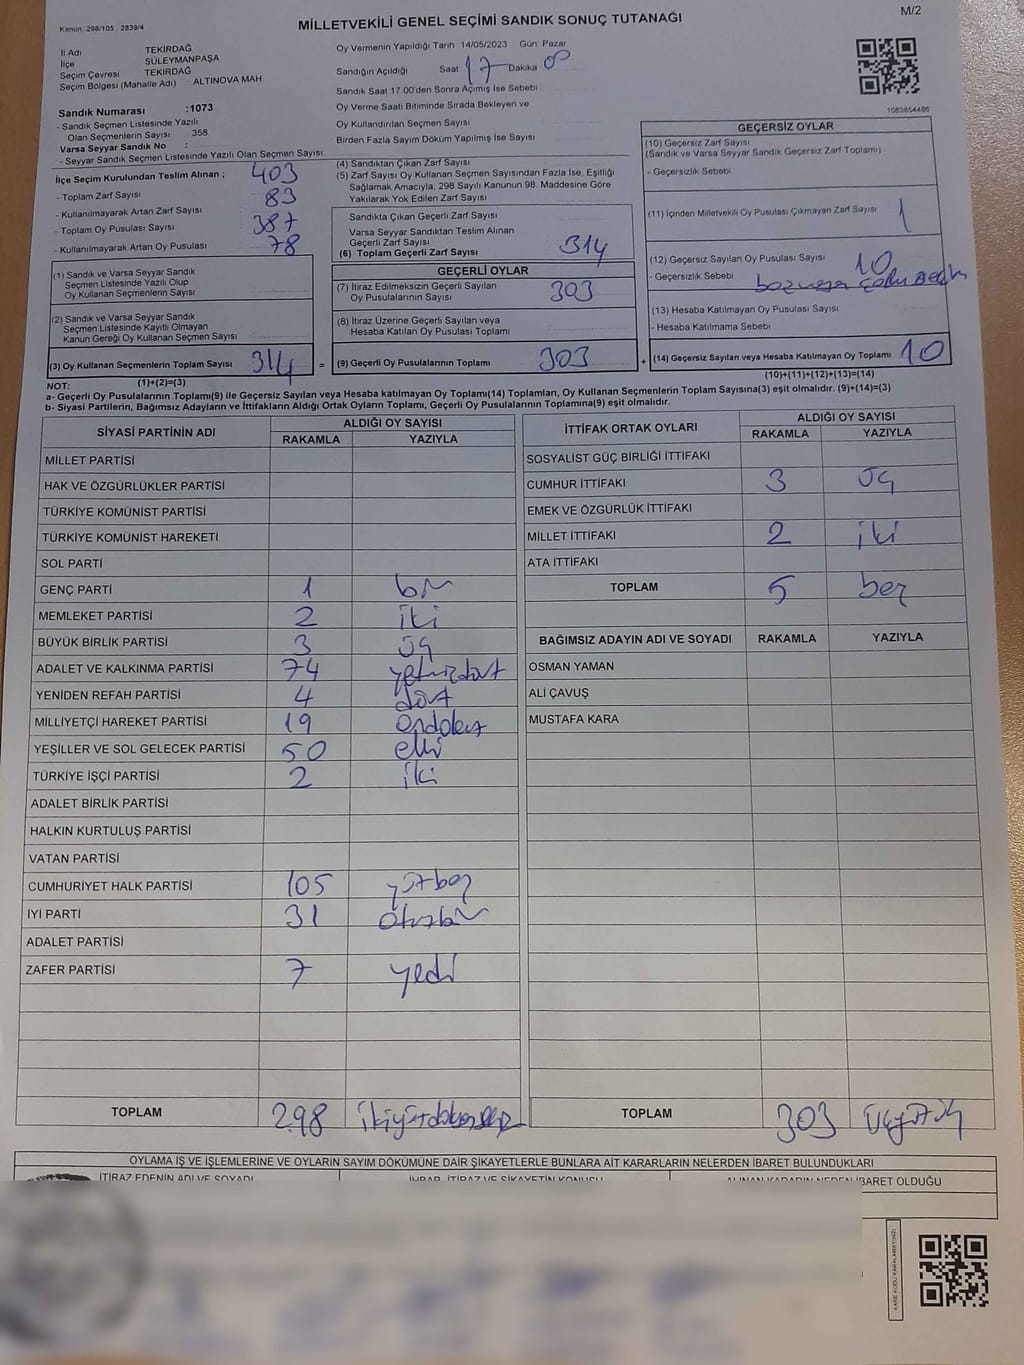 Kanun: 298/105 , 2839/4
MİLLETVEKİLİ GENEL SEÇİMİ SANDIK SONUÇ TUTANAĞI
M/2
İl Adı TEKİRDAĞ
İlçe SÜLEYMANPAŞA
Seçim Çevresi TEKİRDAĞ
Seçim Bölgesi (Mahalle Adı) ALTINOVA MAH
Sandık Numarası :1073
- Sandık Seçmen Listesinde Yazılı
Olan Seçmenlerin Sayısı : 358
Varsa Seyyar Sandık No :
- Seyyar Sandık Seçmen Listesinde Yazılı Olan Seçmen Sayısı:
İlçe Seçim Kurulundan Teslim Alınan ;
- Toplam Zarf Sayısı 403
- Kullanılmayarak Artan Zarf Sayısı 83
- Toplam Oy Pusulası Sayısı 387
- Kullanılmayarak Artan Oy Pusulası 78
(1) Sandık ve Varsa Seyyar Sandık
Seçmen Listesinde Yazılı Olup
Oy Kullanan Seçmenlerin Sayısı
(2) Sandık ve Varsa Seyyar Sandık
Seçmen Listesinde Kayıtlı Olmayan
Kanun Gereği Oy Kullanan Seçmen Sayısı
(3) Oy Kullanan Seçmenlerin Toplam Sayısı 314 =
(1)+(2)=(3)
Oy Vermenin Yapıldığı Tarih :14/05/2023 Gün: Pazar
Sandığın Açıldığı Saat 17 Dakika 00
Sandık Saat 17 00'den Sonra Açımış İse Sebebi
Oy Verme Saati Bitiminde Sırada Bekleyen ve
Oy Kullandırılan Seçmen Sayısı
Birden Fazla Sayım Döküm Yapılmış İse Sayısı
(4) Sandıktan Çıkan Zarf Sayısı
(5) Zarf Sayısı Oy Kullanan Seçmen Sayısından Fazla İse, Eşitliği
Sağlamak Amacıyla, 298 Sayılı Kanunun 98. Maddesine Göre
Yakılarak Yok Edilen Zarf Sayısı
Sandıkta Çıkan Geçerli Zarf Sayısı
Varsa Seyyar Sandıktan Teslim Alınan
Geçerli Zarf Sayısı
(6) Toplam Geçerli Zarf Sayısı 314
GEÇERLİ OYLAR
(7) İtiraz Edilmeksizin Geçerli Sayılan
Oy Pusulalarının Sayısı 303
(8) İtiraz Üzerine Geçerli Sayılan veya
Hesaba Katılan Oy Pusulası Toplamı
(9) Geçerli Oy Pusulalarının Toplamı 303 +
1083654486
GEÇERSİZ OYLAR
(10) Geçersiz Zarf Sayısı
(Sandık ve Varsa Seyyar Sandık Geçersiz Zarf Toplamı)
- Geçersizlik Sebebi
(11) İçinden Milletvekili Oy Pusulası Çıkmayan Zarf Sayısı 1
(12) Geçersiz Sayılan Oy Pusulası Sayısı 10
- Geçersizlik Sebebi
(13) Hesaba Katılmayan Oy Pusulası Sayısı
- Hesaba Katılmama Sebebi
(14) Geçersiz Sayılan veya Hesaba Katılmayan Oy Toplamı 10
(10)+(11)+(12)+(13)=(14)
NOT:
a- Geçerli Oy Pusulalarının Toplamı(9) ile Geçersiz Sayılan veya Hesaba katılmayan Oy Toplamı(14) Toplamları, Oy Kullanan Seçmenlerin Toplam Sayısına(3) eşit olmalıdır. (9)+(14)=(3)
b- Siyasi Partilerin, Bağımsız Adayların ve İttifakların Aldığı Ortak Oyların Toplamı, Geçerli Oy Pusulalarının Toplamına(9) eşit olmalıdır.
SİYASİ PARTİNİN ADI ALDIĞI OY SAYISI
RAKAMLA YAZIYLA
MİLLET PARTİSİ
HAK VE ÖZGÜRLÜKLER PARTİSİ
TÜRKİYE KOMÜNİST PARTİSİ
TÜRKİYE KOMÜNİST HAREKETİ
SOL PARTİ
GENÇ PARTİ 1 bir
MEMLEKET PARTİSİ 2 iki
BÜYÜK BİRLİK PARTİSİ 3 üç
ADALET VE KALKINMA PARTİSİ 74 yetmişdört
YENİDEN REFAH PARTİSİ 4 dört
MİLLİYETÇİ HAREKET PARTİSİ 19 ondokuz
YEŞİLLER VE SOL GELECEK PARTİSİ 50 elli
TÜRKİYE İŞÇİ PARTİSİ 2 iki
ADALET BİRLİK PARTİSİ
HALKIN KURTULUŞ PARTİSİ
VATAN PARTİSİ
CUMHURİYET HALK PARTİSİ 105 yüzbeş
İYİ PARTİ 31 otuzbir
ADALET PARTİSİ
ZAFER PARTİSİ 7 yedi
TOPLAM 298 ikiyüzdoksansekiz
İTTİFAK ORTAK OYLARI ALDIĞI OY SAYISI
RAKAMLA YAZIYLA
SOSYALİST GÜÇ BİRLİĞİ İTTİFAKI
CUMHUR İTTİFAKI 3 üç
EMEK VE ÖZGÜRLÜK İTTİFAKI
MİLLET İTTİFAKI 2 iki
ATA İTTİFAKI
TOPLAM 5 beş
BAĞIMSIZ ADAYIN ADI VE SOYADI RAKAMLA YAZIYLA
OSMAN YAMAN
ALİ ÇAVUŞ
MUSTAFA KARA
TOPLAM 303 üçyüzüç
OYLAMA İŞ VE İŞLEMLERİNE VE OYLARIN SAYIM DÖKÜMÜNE DAİR ŞİKAYETLERLE BUNLARA AİT KARARLARIN NELERDEN İBARET BULUNDUKLARI
İTİRAZ EDENİN ADI VE SOYADI İHBAR, İTİRAZ VE ŞİKAYETİN KONUSU ALINAN KARARIN NEDEN İBARET OLDUĞU